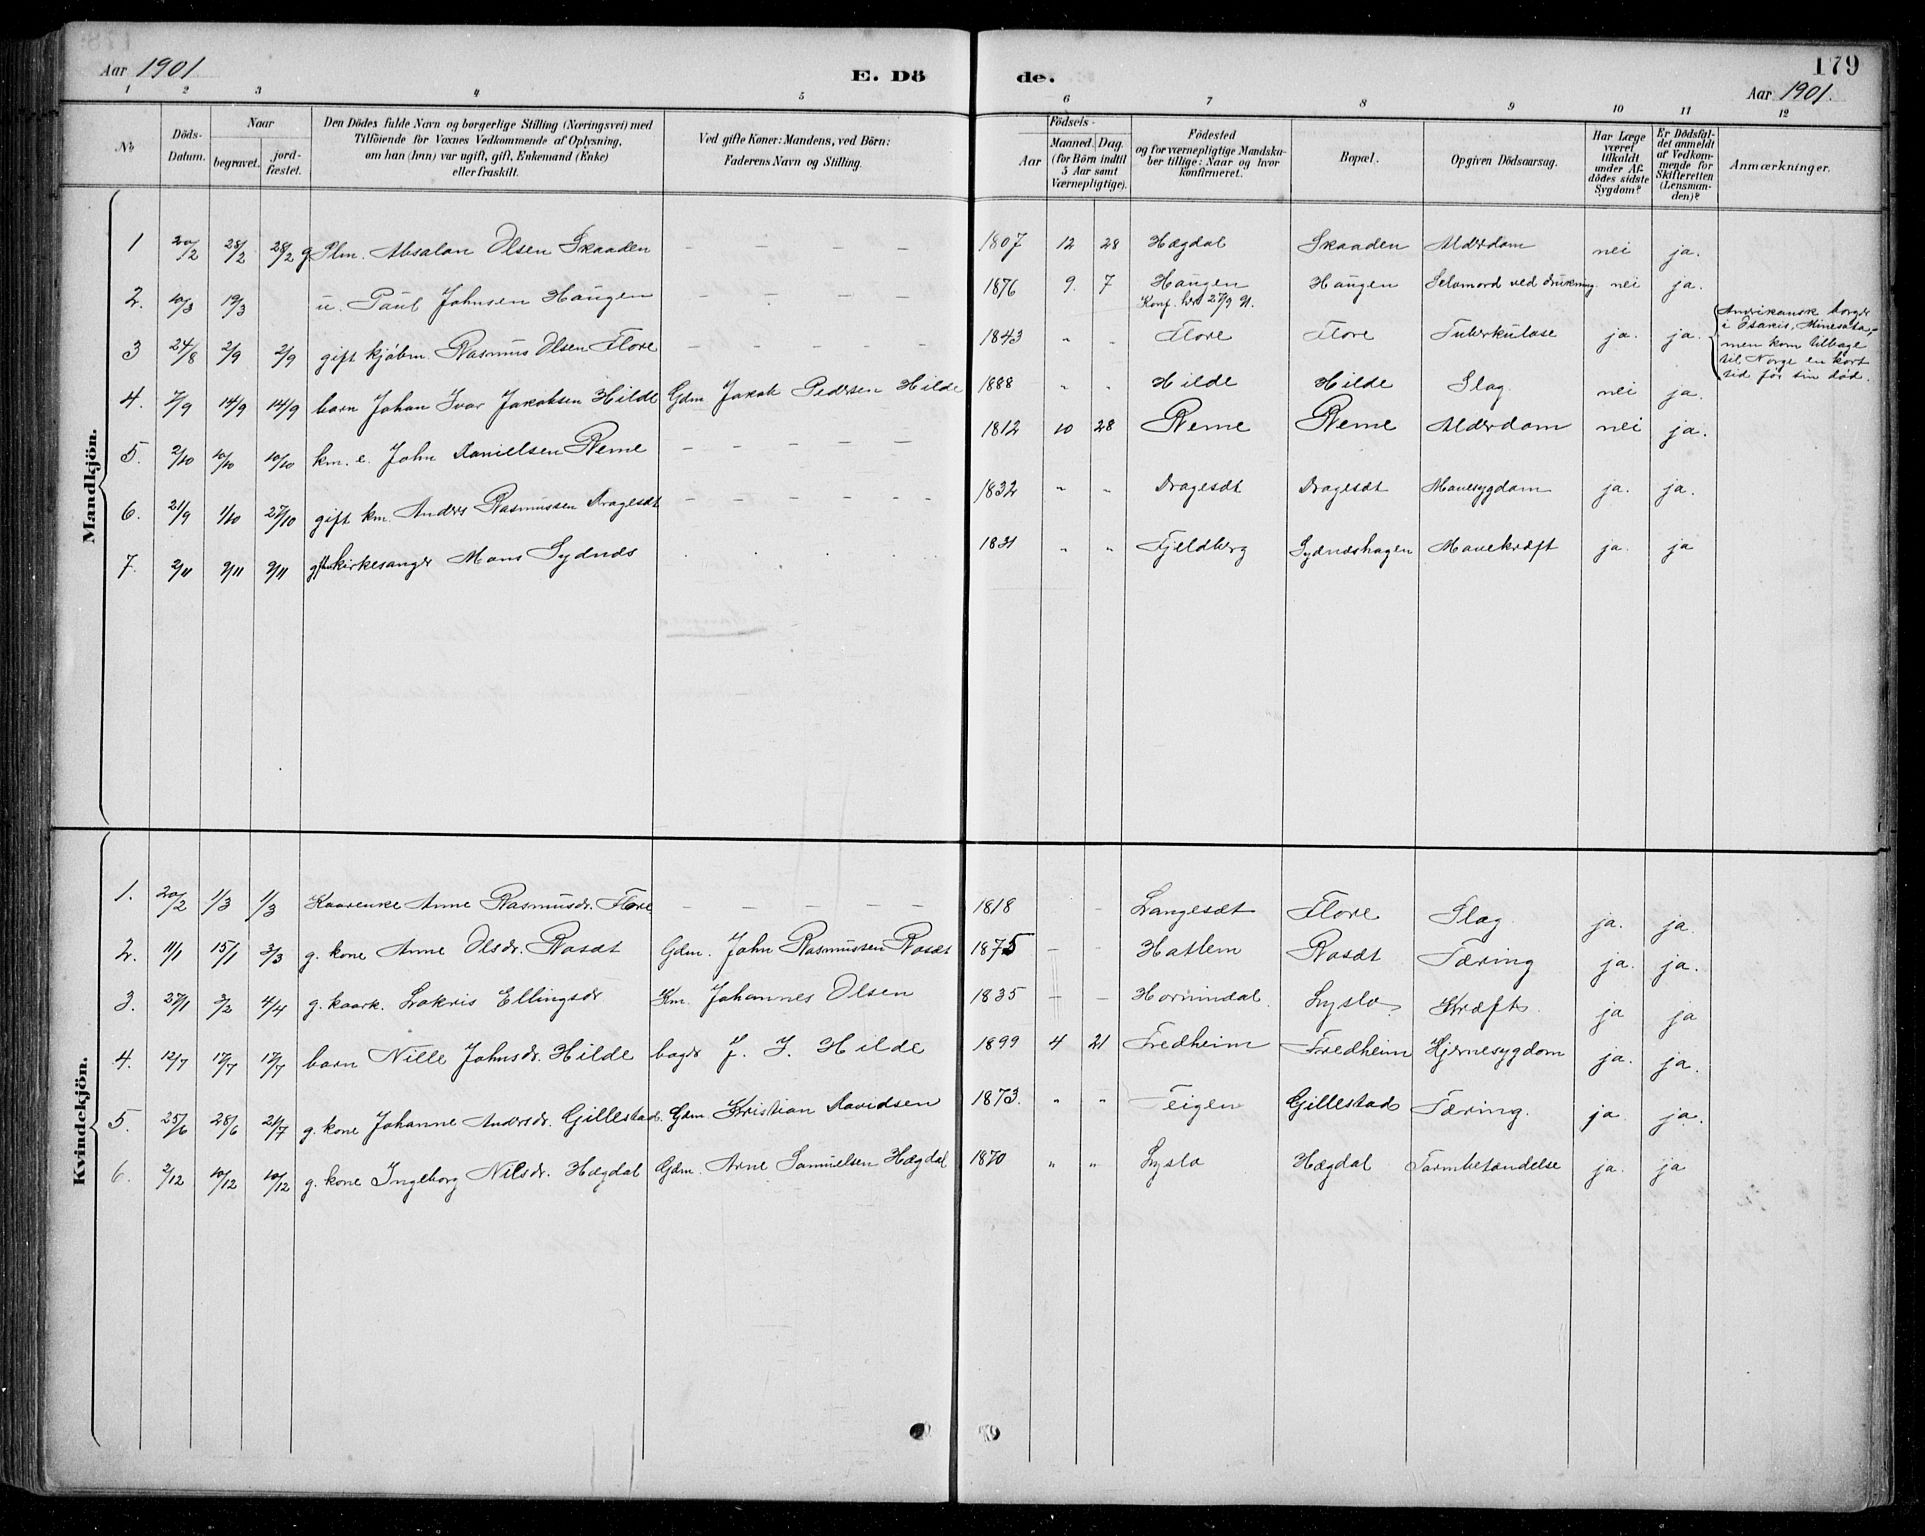 Aar 1901
E. Dö
de.
179
Aar 1901.
1 2 3 4 5 6 7 8 9 10 11 12
No
Döds-Datum.
Naar
begravet. jord-fæstet.
Den Dödes fulde Navn og borgerlige Stilling (Næringsvei) med
Tilföiende for Voxnes Vedkommende af Oplysning,
om han (hun) var ugift, gift, Enkemand (Enke)
eller fraskilt.
Ved gifte Koner: Mandens, ved Börn:
Faderens Navn og Stilling.
Födsels-
Aar Maaned. Dag.
(for Börn indtil
5 Aar samt
Værnepligtige).
Födested
og for værnepligtige Mandska-
ber tillige: Naar og hvor
konfirmeret.
Bopæl.
Opgiven Dödsaarsag.
Har Læge
været
tilkaldt
under Af-
dödes sidste
Sygdom?
Er Dödsfal-
det anmeldt
af Vedkom-
mende for
Skifteretten
(Lensman-
den)?
Anmærkninger.
Mandkjön.
1 20/2 28/2 28/2 g Plm. Absalon Olsen Skaaden – – – – 1807 12 28 Hægdal Skaaden Alderdom nei ja.
2. 10/3 19/3 u. Paul Johnsen Haugen – – – – 1876 9. 7 Haugen Haugen Selvmord ved drukning. nei ja.
Konf. her 27/9 91.
3 24/8 2/9 2/9 gift kjöbm. Rasmus Olsen Flore – – – – – 1843 " " Flore Flore Tuberkulose ja. ja.
Amerikansk borger
i Osakis, Minesota,
men kom tilbage
til Norge en kort
tid før sin død.
4. 7/9 14/9 14/9 barn Johan Ivar Jakobsen Hilde Gdm Jakob Pedersen Hilde 1888 " " Hilde Hilde Slag nei ja.
5. 2/10 10/10 10/10 km. e. John Danielsen Reme – – – – 1812 10 28 Reme Reme Alderdom nei ja.
6. 21/9 1/10 27/10 gift km. Anders Rasmussen Dragesæt – – – – – 1832 " " Dragesæt Dragesæt Mavesygdom ja. ja.
7. 2/11 9/11 9/11 gift kirkesanger Mons Sydnæs 1831 " " Fjeldberg Sydnæshagen Mavekræft ja. ja
Kvindekjön.
1. 20/2 1/3 1/3 Kaarenke Anne Rasmusdr. Flore – – – – – 1818 – – Langesæt Flore Slag ja. ja.
2. 11/1 15/1 3/3 g. kone Anne Olsdr. Rosæt Gdm. John Rasmussen Rosæt 1875 – – Hatlem Rosæt Tæring ja. ja.
3. 27/1 3/2 4/4 g. kaark. Lokris Ellingsdr Km. Johannes Olsen 1835 – – Hornindal Lyslo Kræft ja ja
4. 12/7 17/7 17/7 barn Nille Johnsdr. Hilde bager J. J. Hilde 1899 4 21 Fredheim Fredheim Hjernesygdom ja. ja.
5. 25/6 28/6 21/7 g. kone Johanne Andersdr. Gillestad. Gdm. Kristian Davidsen 1873. " " Teigen Gillestad Tæring. ja. ja.
6. 2/12 10/12 10/12 g. kone Ingeborg Nilsdr. Hægdal Gdm. Arne Samuelsen Hægdal 1870 " " Lyslo Hægdal Tarmbetændelse ja. ja